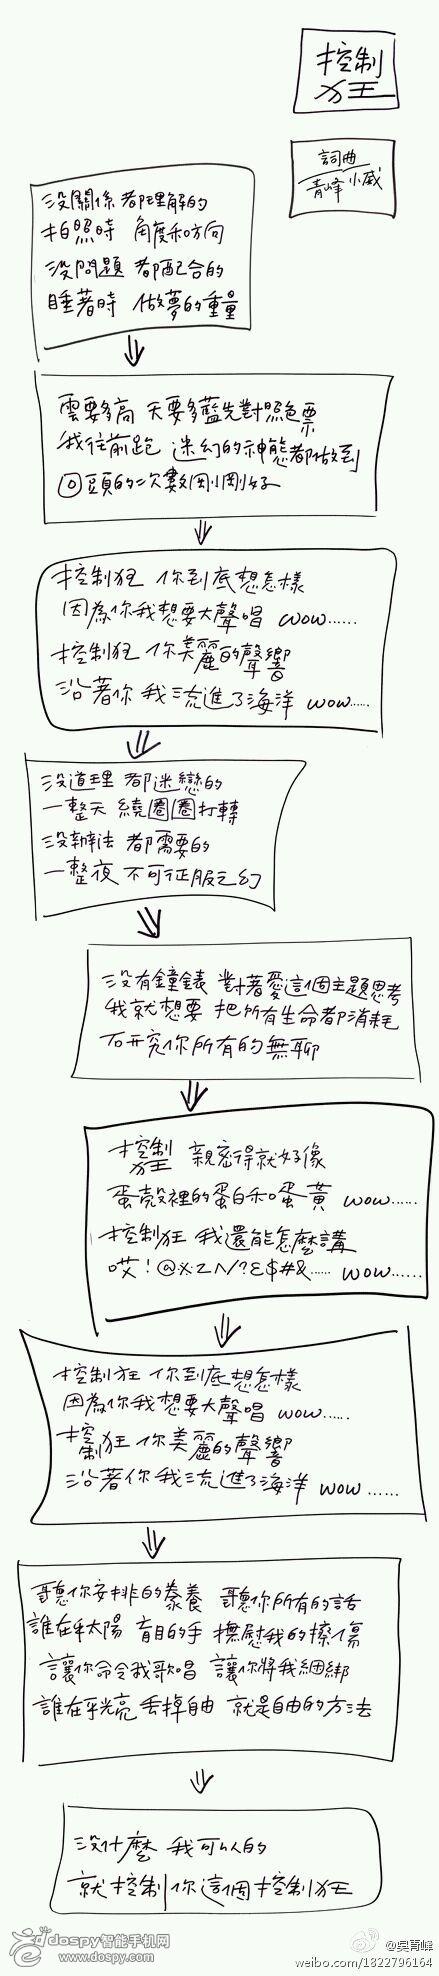 控制
狂
詞曲
青峰 小威
沒關係 都理解的
拍照時 角度和方向
沒問題 都配合的
睡著時 做夢的重量
雲要多高 天要多藍先對照色票
我往前跑 迷幻的神態都做到
回頭的次數剛剛好
控制狂 你到底想怎樣
因為你我想要大聲唱 wow……
控制狂 你美麗的聲響
沿著你 我流進了海洋 wow……
沒道理 都迷戀的
一整天 繞圈圈打轉
沒辦法 都需要的
一整夜 不可征服之幻
沒有鐘錶 對著愛這個主題思考
我就想要 把所有生命都消耗
研究你所有的無聊
控制狂 親密得就好像
蛋殼裡的蛋白和蛋黃 wow……
控制狂 我還能怎麼講
哎！@※Z^/?&$#&…… wow……
控制狂 你到底想怎樣
因為你我想要大聲唱 wow……
控制狂 你美麗的聲響
沿著你 我流進了海洋 wow……
聽你安排的豢養 聽你所有的話
誰在乎太陽 盲目的手 撫慰我的擦傷
讓你命令我歌唱 讓你將我綑綁
誰在乎光亮 丟掉自由 就是自由的方法
沒什麼 我可以的
就控制你這個控制狂
dospy智能手机网
www.dospy.com
@吳青峰
weibo.com/1822796164